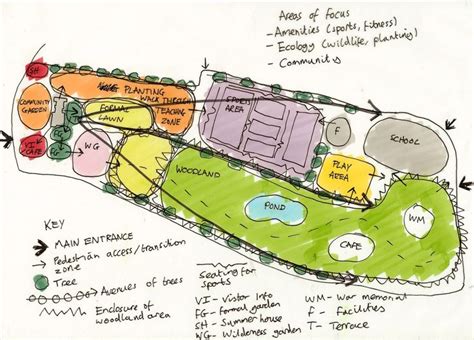 Areas of focus
- Amenities (sports, fitness)
- Ecology (wildlife, planting)
- Community
SH
PLANTING
WALK THROUGH
COMMUNITY
GARDEN
FORMAL
LAWN
TEACHING
ZONE
SPORTS
AREA
T
FG
VI
CAFE
WG
F
SCHOOL
PLAY
AREA
WOODLAND
POND
WM
CAFE
KEY
MAIN ENTRANCE
Pedestrian access/transition
zone
Tree
Avenues of trees
Enclosure of
woodland area
Seating for
sports
VI - Vistor Info
FG - formal garden
SH - Summer house
WG - Wilderness garden
WM - War memorial
F - Facilities
T - Terrace